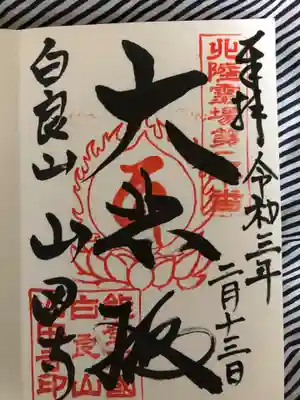 奉拝
令和三年
二月十三日
北陸靈場第
番
大悲殿
白良山
山田寺
國
白良山
山田寺印